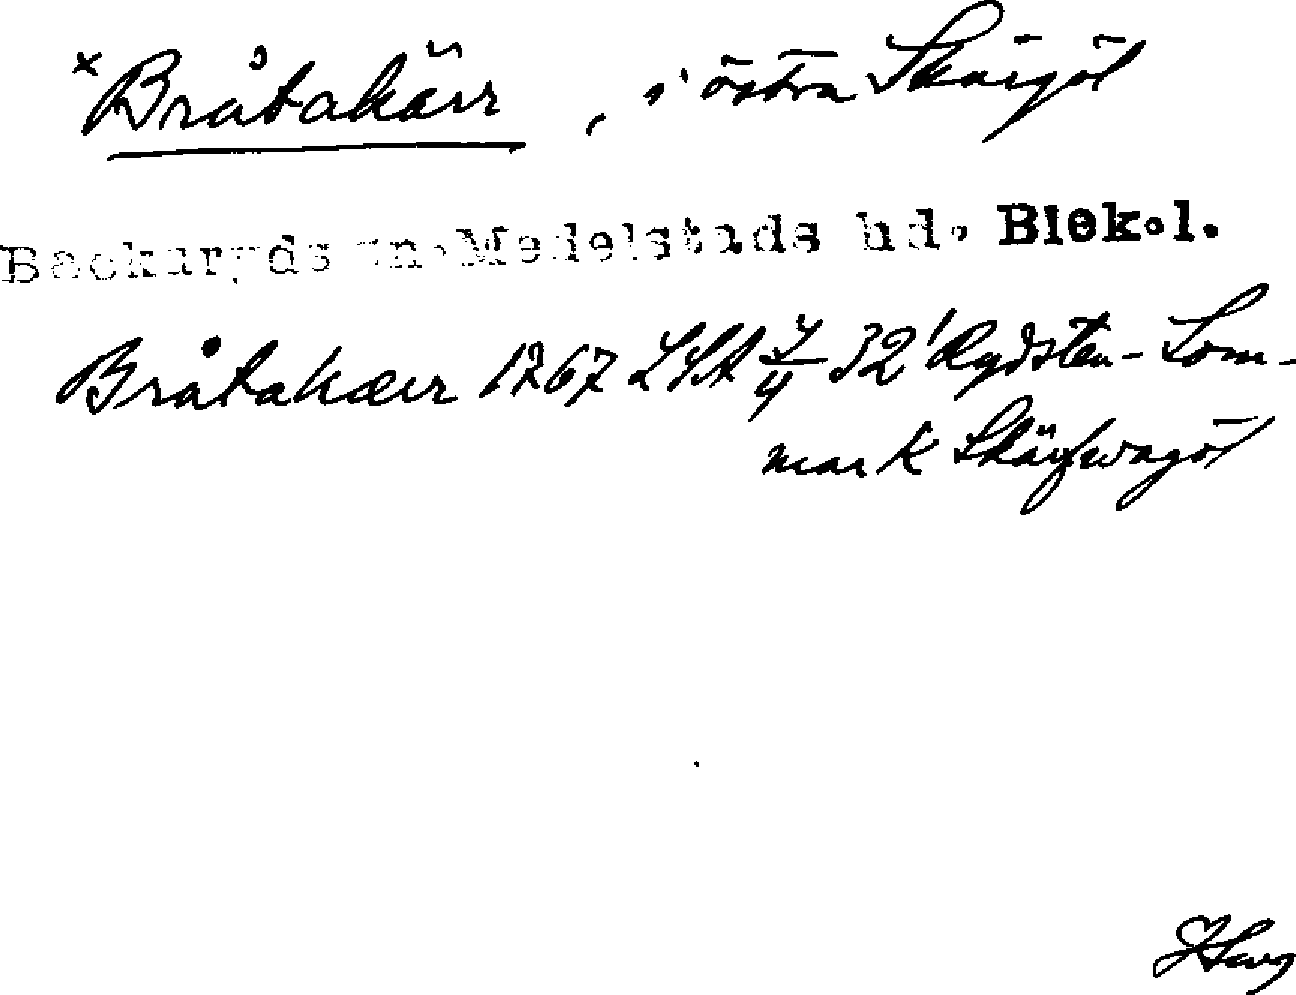 × Bråtakärr, i östra Skärgöl
Backaryds sn. Medelstads hd. Blek.l.
Bråtakærr 1767 LSA 32 Rydsten-Lom-
mark Skärfwagöl